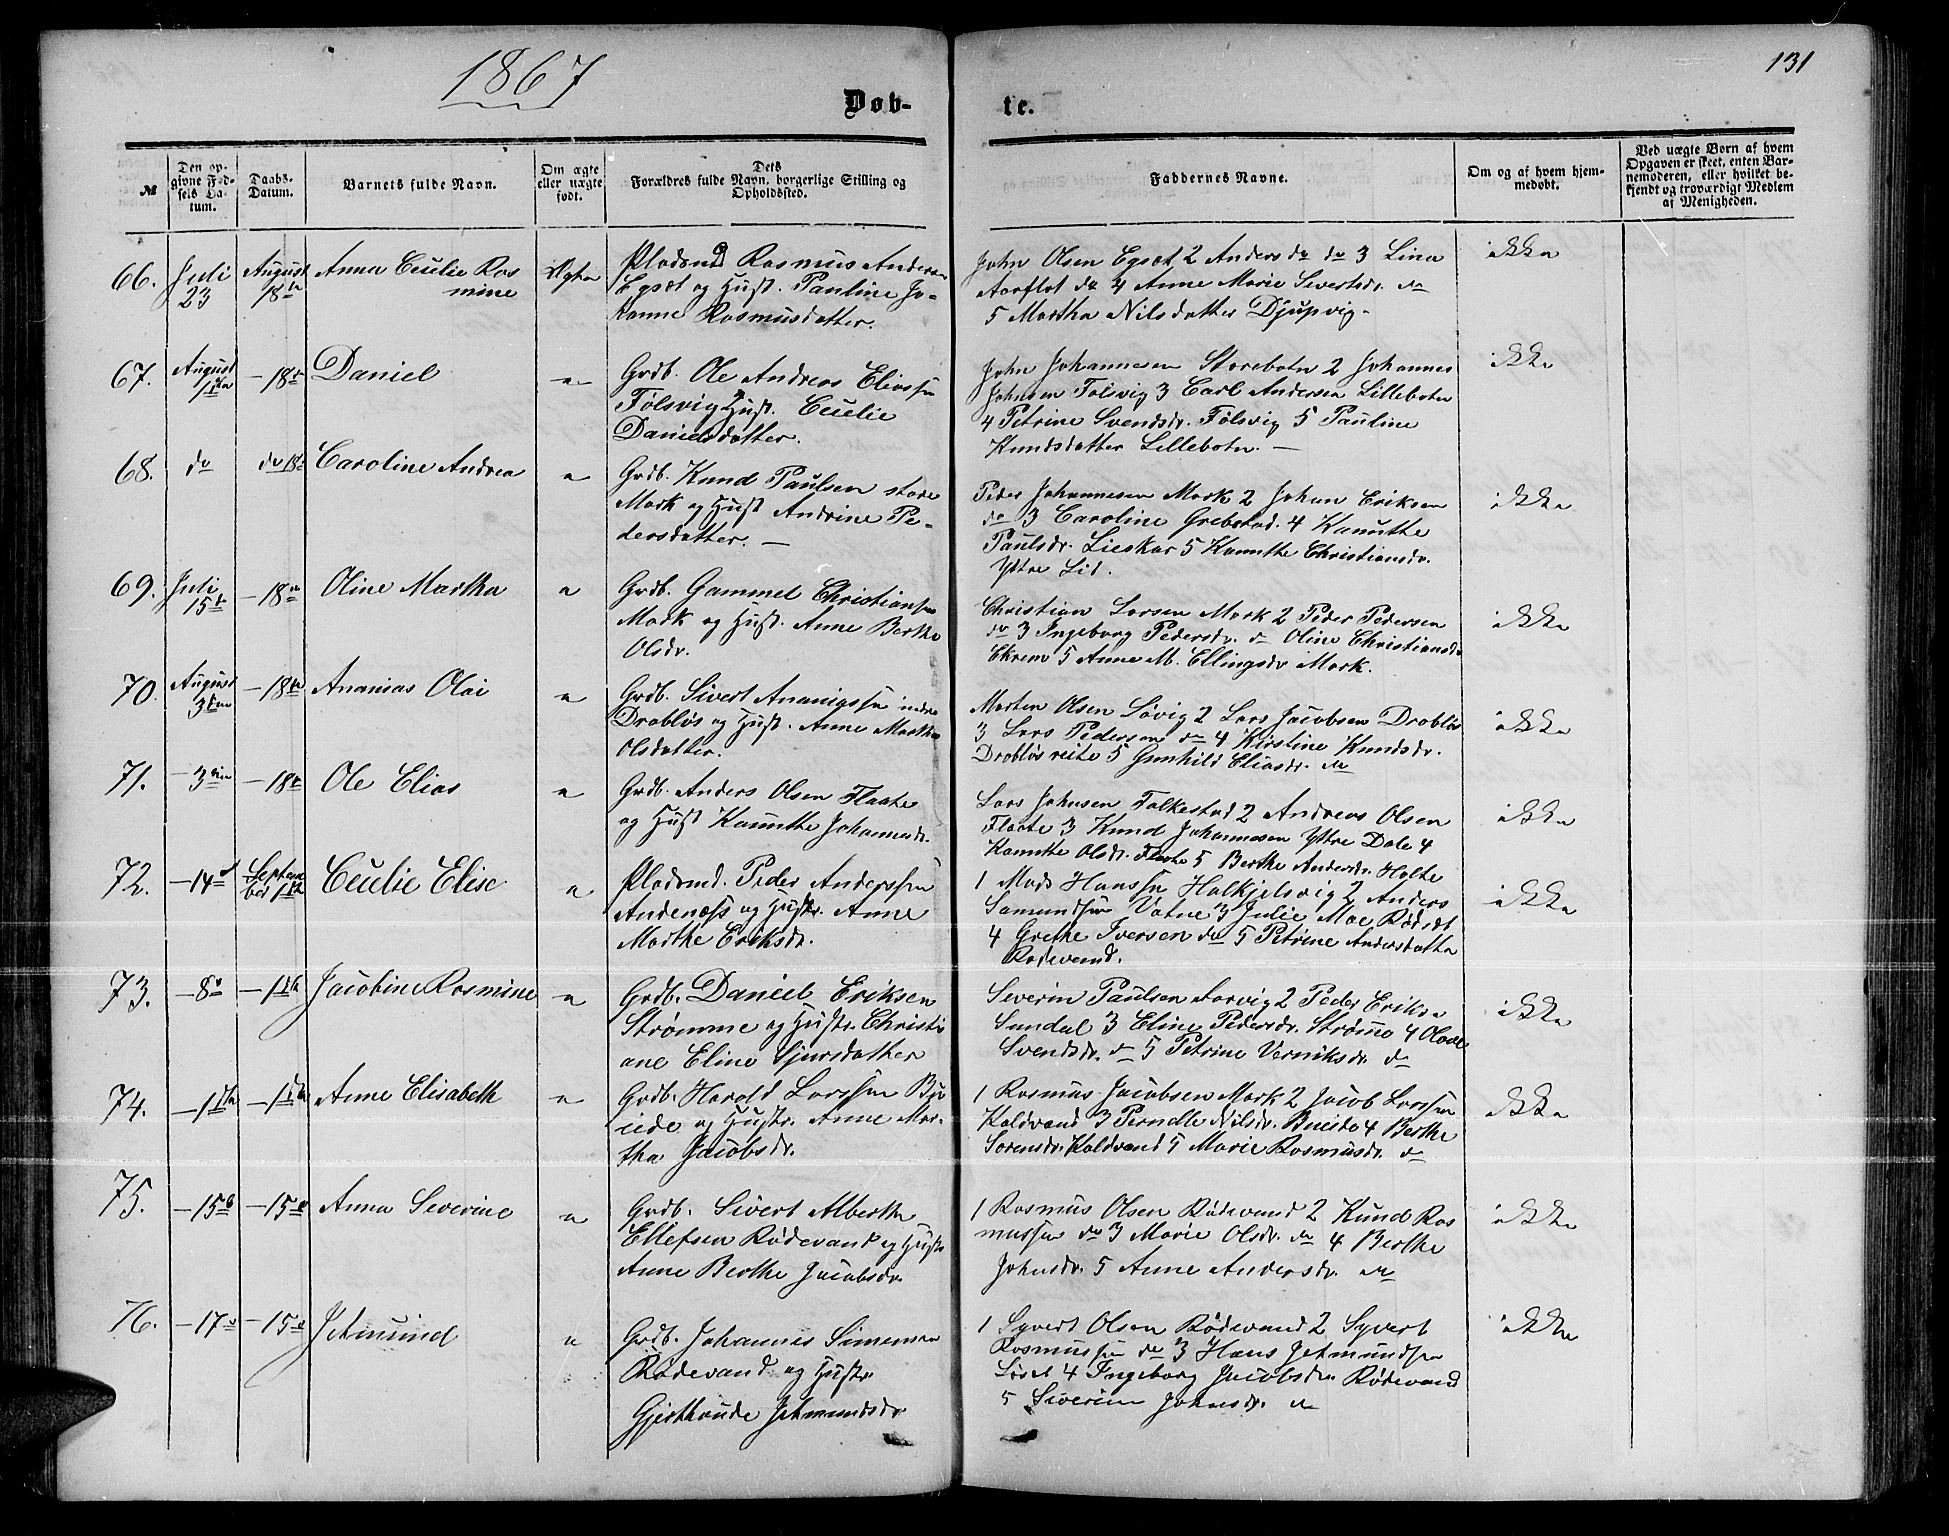 1867
131
Døb-
te.
№
Den op-
givne Fød-
sels Da-
tum.
Daabs-
Datum.
Barnets fulde Navn.
Om ægte
eller uægte
født.
Dets
Forældres fulde Navn, borgerlige Stilling og
Opholdssted.
Faddernes Navne.
Om og af hvem hjem-
medøbt.
Ved uægte Børn af hvem
Opgaven er skeet, enten Bar-
nemoderen, eller hvilket be-
kjendt og troværdigt Medlem
af Menigheden.
66.
Juli
23
August
18de
Anna Cecelie Ras
mine
Ægte
Pladsmd Rasmus Anderse
Egset og Hust. Pauline Jo-
hanne Rasmusdatter.
John Olsen Egset 2 Anders do do 3 Lina
Aarflot do 4 Anne Marie Sivertsdr. do
5 Martha Nilsdatter Djupvig.
ikke
67.
August
1ste
- 18de
Daniel
"
Grdb. Ole Andreas Eliassen
Følsvig Hust. Cecelie
Danielsdatter.
John Johannesen Storebotn 2 Johannes
Johnsen Følsvig 3 Carl Andersen Lillebotn
4 Petrine Svendsdr. Følsvig 5 Pauline
Knudsdatter Lillebotn. -
ikke
68.
do
do 18de
Caroline Andrea
"
Grdb. Knud Paulsen store
Mork og Hust Andrine Pe-
dersdatter. -
Peder Johannesen Mork 2 Johan Eriksen
do 3 Caroline Grebstad. 4 Kanutte
Paulsdr. Lieskar 5 Kanutte Christiansdr.
Ytre Lid.
ikke
69.
Juli
15de
- 18de
Oline Martha
"
Grdb. Gammel Christiansen
Mork og Hust. Anne Berthe
Olsdr.
Christian Larsen Mork 2 Peder Pedersen
do 3 Ingeborg Pedersdr. do Oline Christiansdr
Ekrem 5 Anne M. Ellingsdr Mork.
ikke
70.
August
3die
- 18de
Ananias Olai
"
Grdb. Sivert Ananiassen indre
Drabløs og Hust. Anne Marthe
Olsdatter.
Morten Olsen Løvig 2 Lars Jacobsen Drabløs
3 Lars Pedersen do 4 Kirstine Knudsdr.
Drabløsreite 5 Gunhild Eliasdr. do
ikke
71.
- 3die
- 18de
Ole Elias
"
Grdb. Anders Olsen Flaate
og Hust Kanutte Johannesdr.
Lars Johnsen Folkestad 2 Andreas Olsen
Flaate 3 Knud Johannesen Ytre Dale 4
Kanutte Olsdr. Flaate 5 Berthe Andersdr. Holte
ikke
72.
- 14de
Septem
ber 1ste
Cecelie Elise
"
Pladsmd. Peder Anderssen
Andenæss og Hustr. Anne
Marthe Eriksdr.
1 Mads Hanssen Halkjelsvig 2 Anders
Samundsen Vatne 3 Julie Moe Rødset
4 Grethe Iversen do 5 Petrine Andersdatter
Rødevand.
ikke
73.
- 8de
- 1ste
Jacobine Rasmine
"
Grdb. Daniel Eriksen
Strømme og Hustr. Christi
ane Eline Sjursdatter
Severin Paulsen Sorvig 2 Peder Eriksen
Sundal 3 Eline Pedersdr. Strømme 4 Olave
Svendsdr. do 5 Petrine Verniksdr. do
ikke
74.
- 1ste
- 1ste
Anne Elisabeth
"
Grdb. Harald Larssen Bju
iede og Hustr. Anne Mar-
tha Jacobsdr.
1 Rasmus Jacobsen Mork 2 Jacob Larssen
Kaldvand 3 Perndle Nilsdr. Bueide 4 Berthe
Sorensdr. Kaldvand 5 Marie Rasmusdr. do
ikke
75.
- 15de
- 15de
Anna Severine
"
Grdb. Sivert Alberth
Ellefsen Rødevand og Hustr
Anne Berthe Jacobsdr.
1 Rasmus Olsen Rødevand 2 Knud Ras
mussen do 3 Marie Olsdr. do 4 Berthe
Johnsdr. 5 Anne Andersdr. do
ikke
76.
- 17de
- 15de
Jetmund
"
Grdb. Johannes Simensen
Rødevand og Hustr
Gjerthrude Jetmundsdr
1 Syvert Olsen Rødevand 2 Syvert
Rasmussen do 3 Hans Jetmundsen
Løset 4 Ingeborg Jacobsdr. Rødevand
5 Siverine Johnsdr. do
ikke